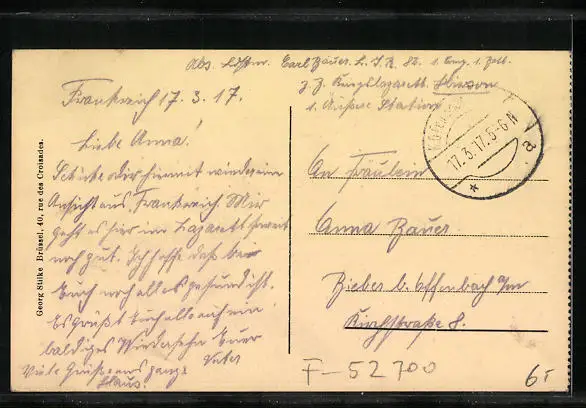 Abs. Earl Bauer. L. I. R. 82. 1. Eng. 1. Zoll.
z. Z. Kriegslazarett. Hirson
1. Äußere Station
Frankreich 17. 3. 17.
Liebe Anna!
Schicke dir hiermit wieder ein
Ansicht aus Frankreich. Mir
geht es hier im Lazarett soweit
noch gut. Ich hoffe daß bei
Euch noch alles gesund ist.
Es grüßt Euch alle auf ein
baldiges Wiedersehn Euer
Vater
Viele Grüße ans ganze
Haus.
Georg Stilke Brüssel, 40, rue des Croisades.
17.3.17.5-6 N
a
An Fräulein
Anna Bauer
Bieber b. Offenbach a/m
Kirchstraße 8.
F-52700
6,-